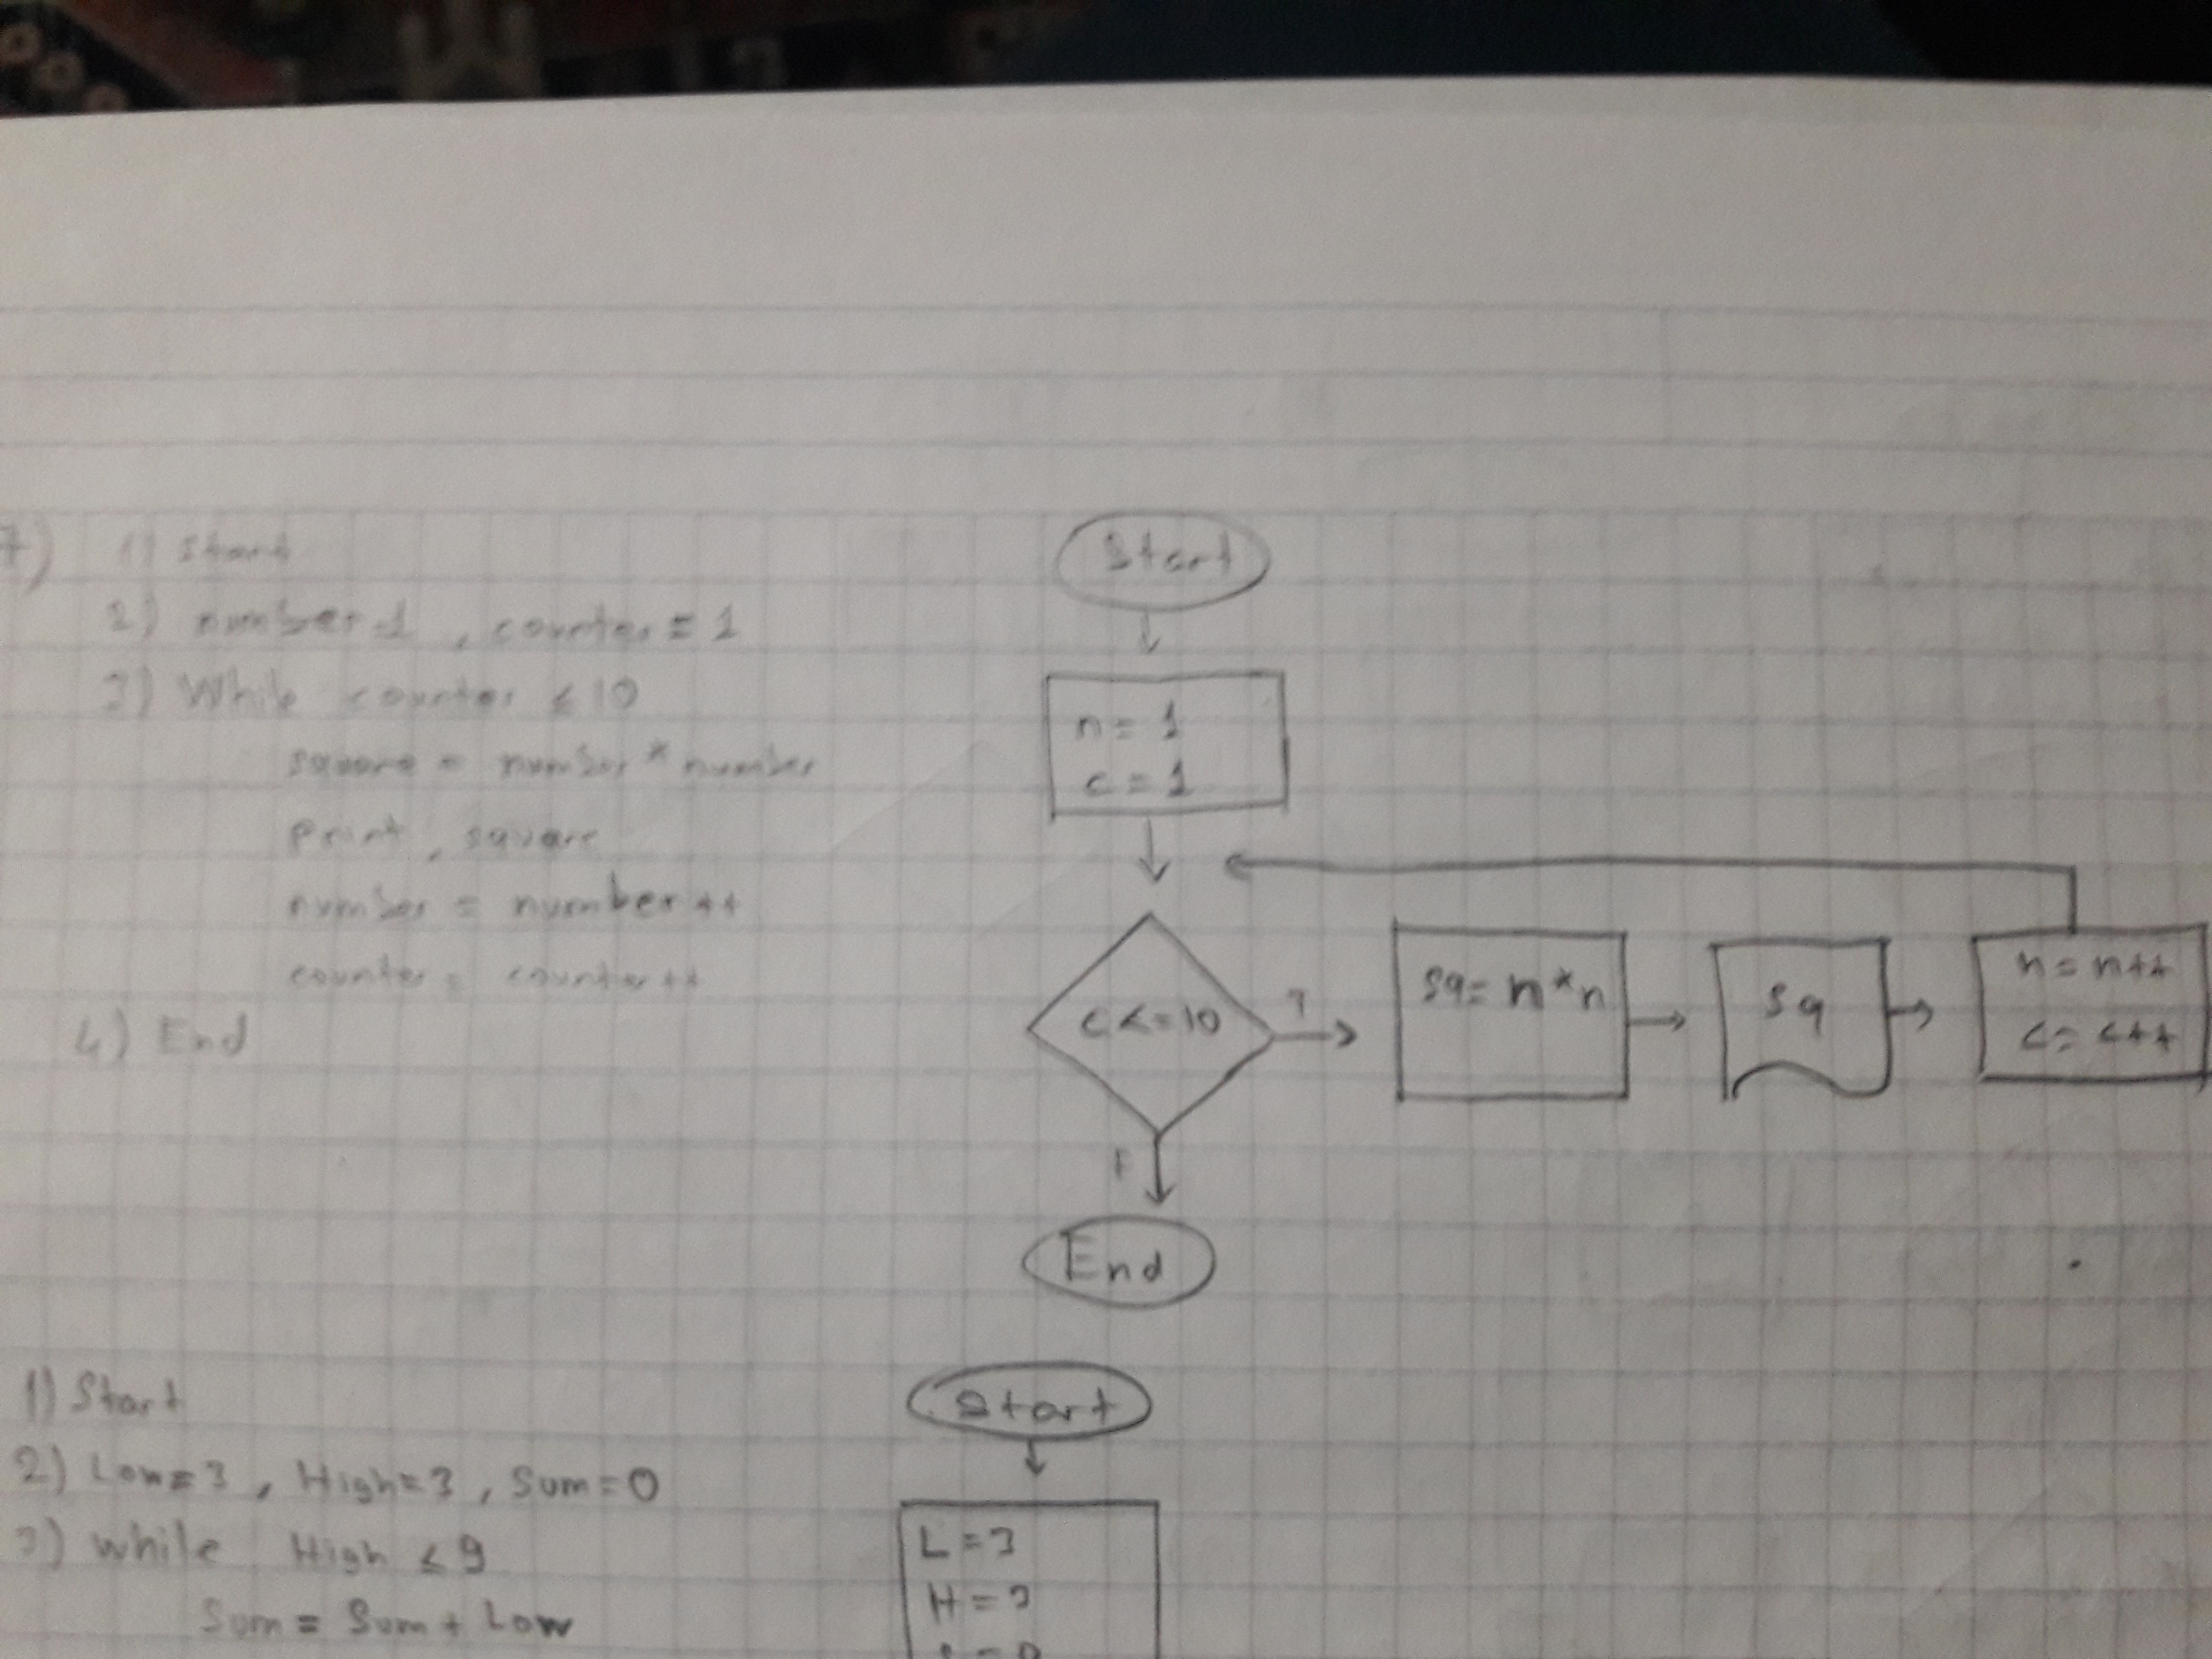 7)
1) Start
2) number=1 , counter = 1
3) While counter ≤ 10
square = number * number
Print, square
number = number++
counter = counter++
4) End
Start
n = 1
c = 1
c <= 10
T
sq = n*n
sq
n = n++
c = c++
F
End
1) Start
2) Low=3 , High=3 , Sum=0
3) while High ≤ 9
Sum = Sum + Low
Start
L = 3
H = 3